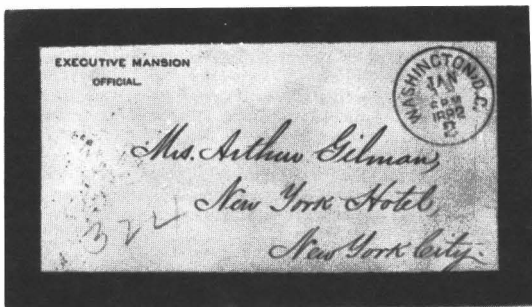 EXECUTIVE MANSION
OFFICIAL.
WASHINGTON, D.C.
JAN
6 PM
1882
2
Mrs. Arthur Gilman,
New York Hotel,
New York City.
322